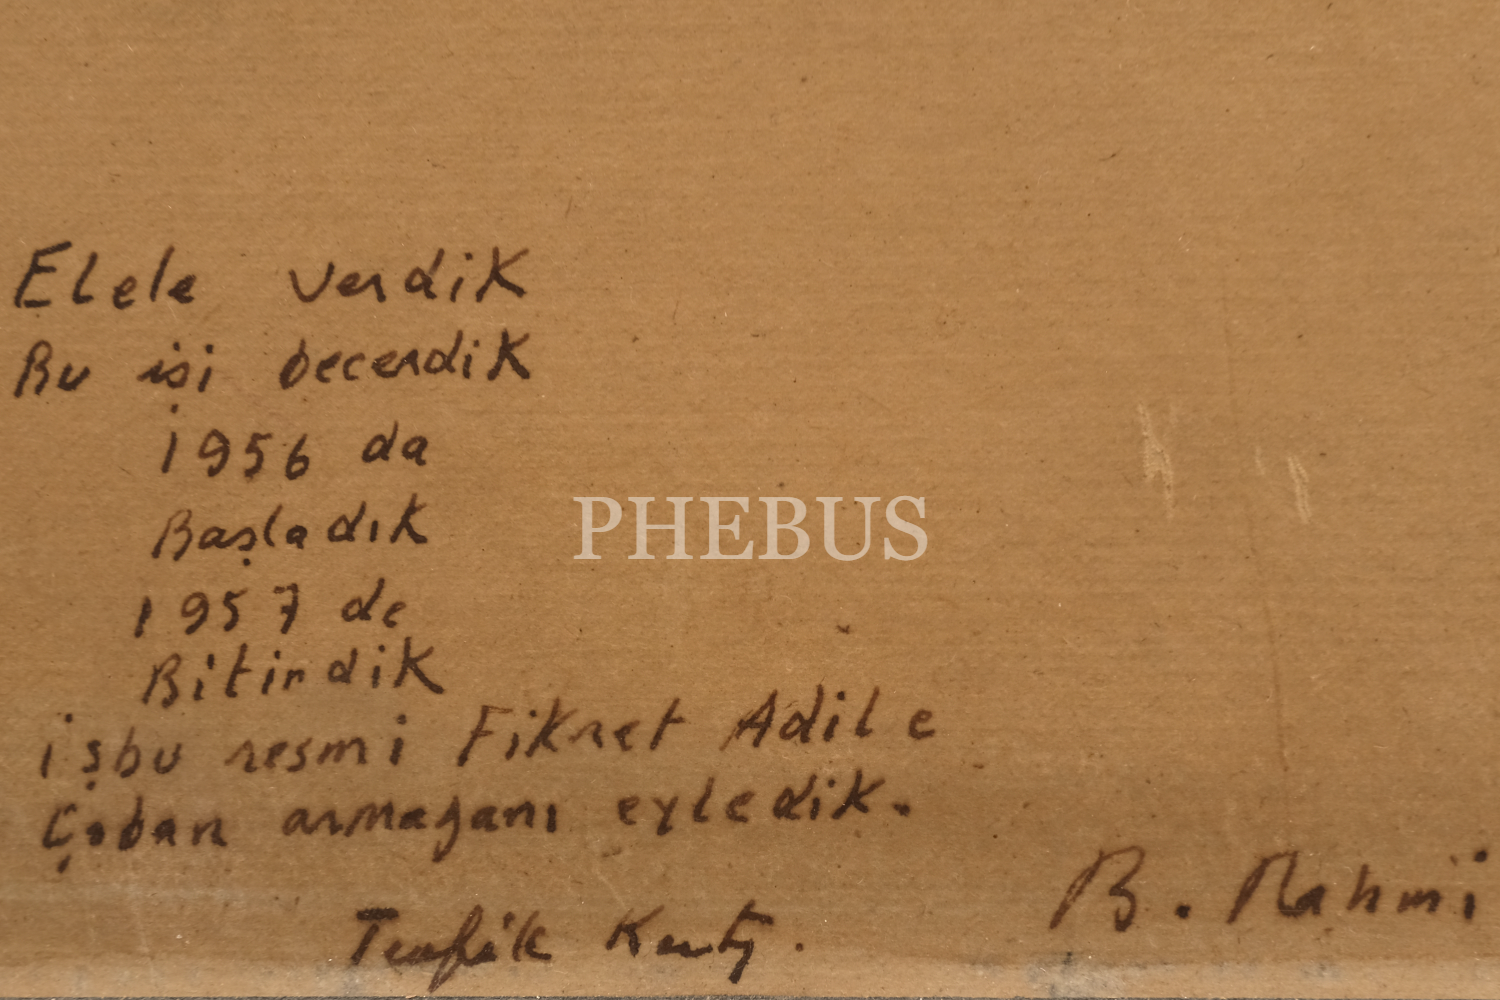 Elele verdik
Bu işi becerdik
1956 da
Başladık
1957 de
Bitirdik
işbu resmi Fikret Adil e
Çoban armaganı eyledik.
B. Rahmi
Teufik
PHEBUS